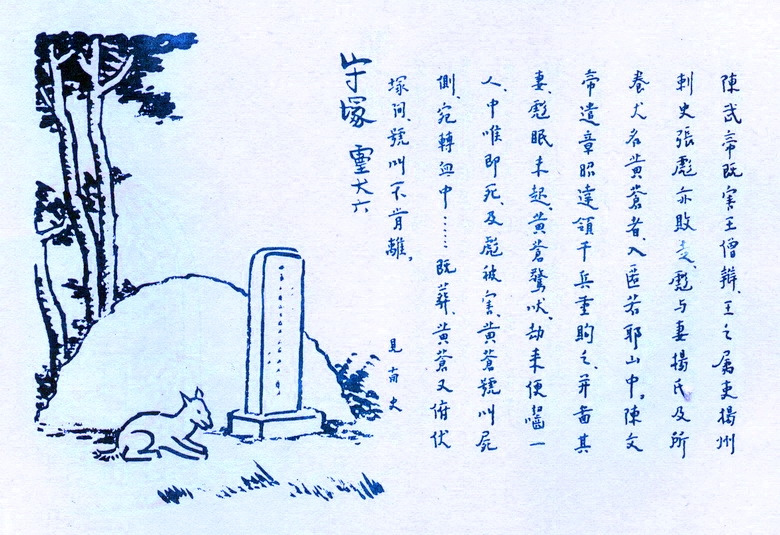 陳武帝既害王僧辯、王之屬吏揚州
刺史張彪亦敗走、彪與妻楊氏及所
养犬名黄蒼者、入匿若耶山中。陳文
帝遣章昭達領千兵重購之、并啚其
妻、彪眠未起、黄蒼驚吠、劫来便嚙一
人、中喉即死、及彪被害、黄蒼號叫屍
側、宛轉血中……既葬、黄蒼又俯伏
塚间、號叫不肯離。
見南史
守塚 靈犬六